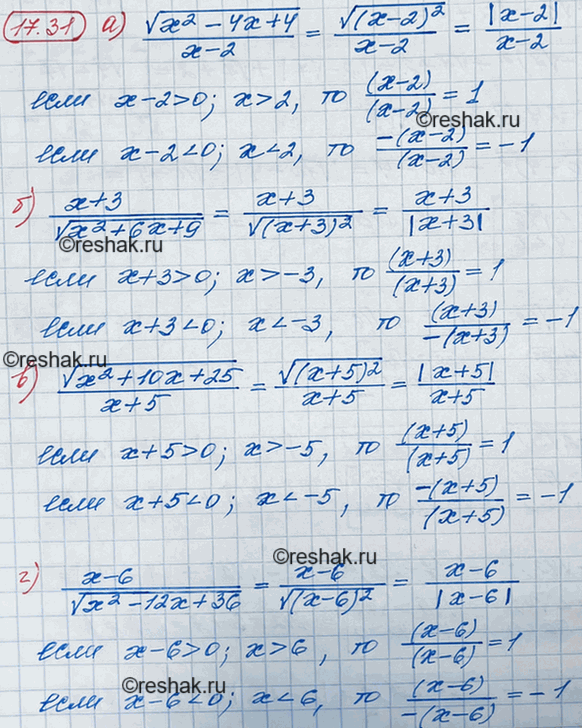 17.31 а) √(x² - 4x + 4) / (x - 2) = √((x-2)²) / (x - 2) = |x - 2| / (x - 2)
если x-2>0; x>2, то (x-2)/(x-2) = 1
©reshak.ru
если x-2<0; x<2, то -(x-2)/(x-2) = -1
б) (x+3) / √(x² + 6x + 9) = (x+3) / √((x+3)²) = (x+3) / |x+3|
©reshak.ru
если x+3>0; x>-3, то (x+3)/(x+3) = 1
если x+3<0; x<-3, то (x+3)/-(x+3) = -1
©reshak.ru
в) √(x² + 10x + 25) / (x+5) = √((x+5)²) / (x+5) = |x+5| / (x+5)
если x+5>0; x>-5, то (x+5)/(x+5) = 1
если x+5<0; x<-5, то -(x+5)/(x+5) = -1
©reshak.ru
г) (x-6) / √(x² - 12x + 36) = (x-6) / √((x-6)²) = (x-6) / |x-6|
если x-6>0; x>6, то (x-6)/(x-6) = 1
©reshak.ru
если x-6<0; x<6, то (x-6)/-(x-6) = -1